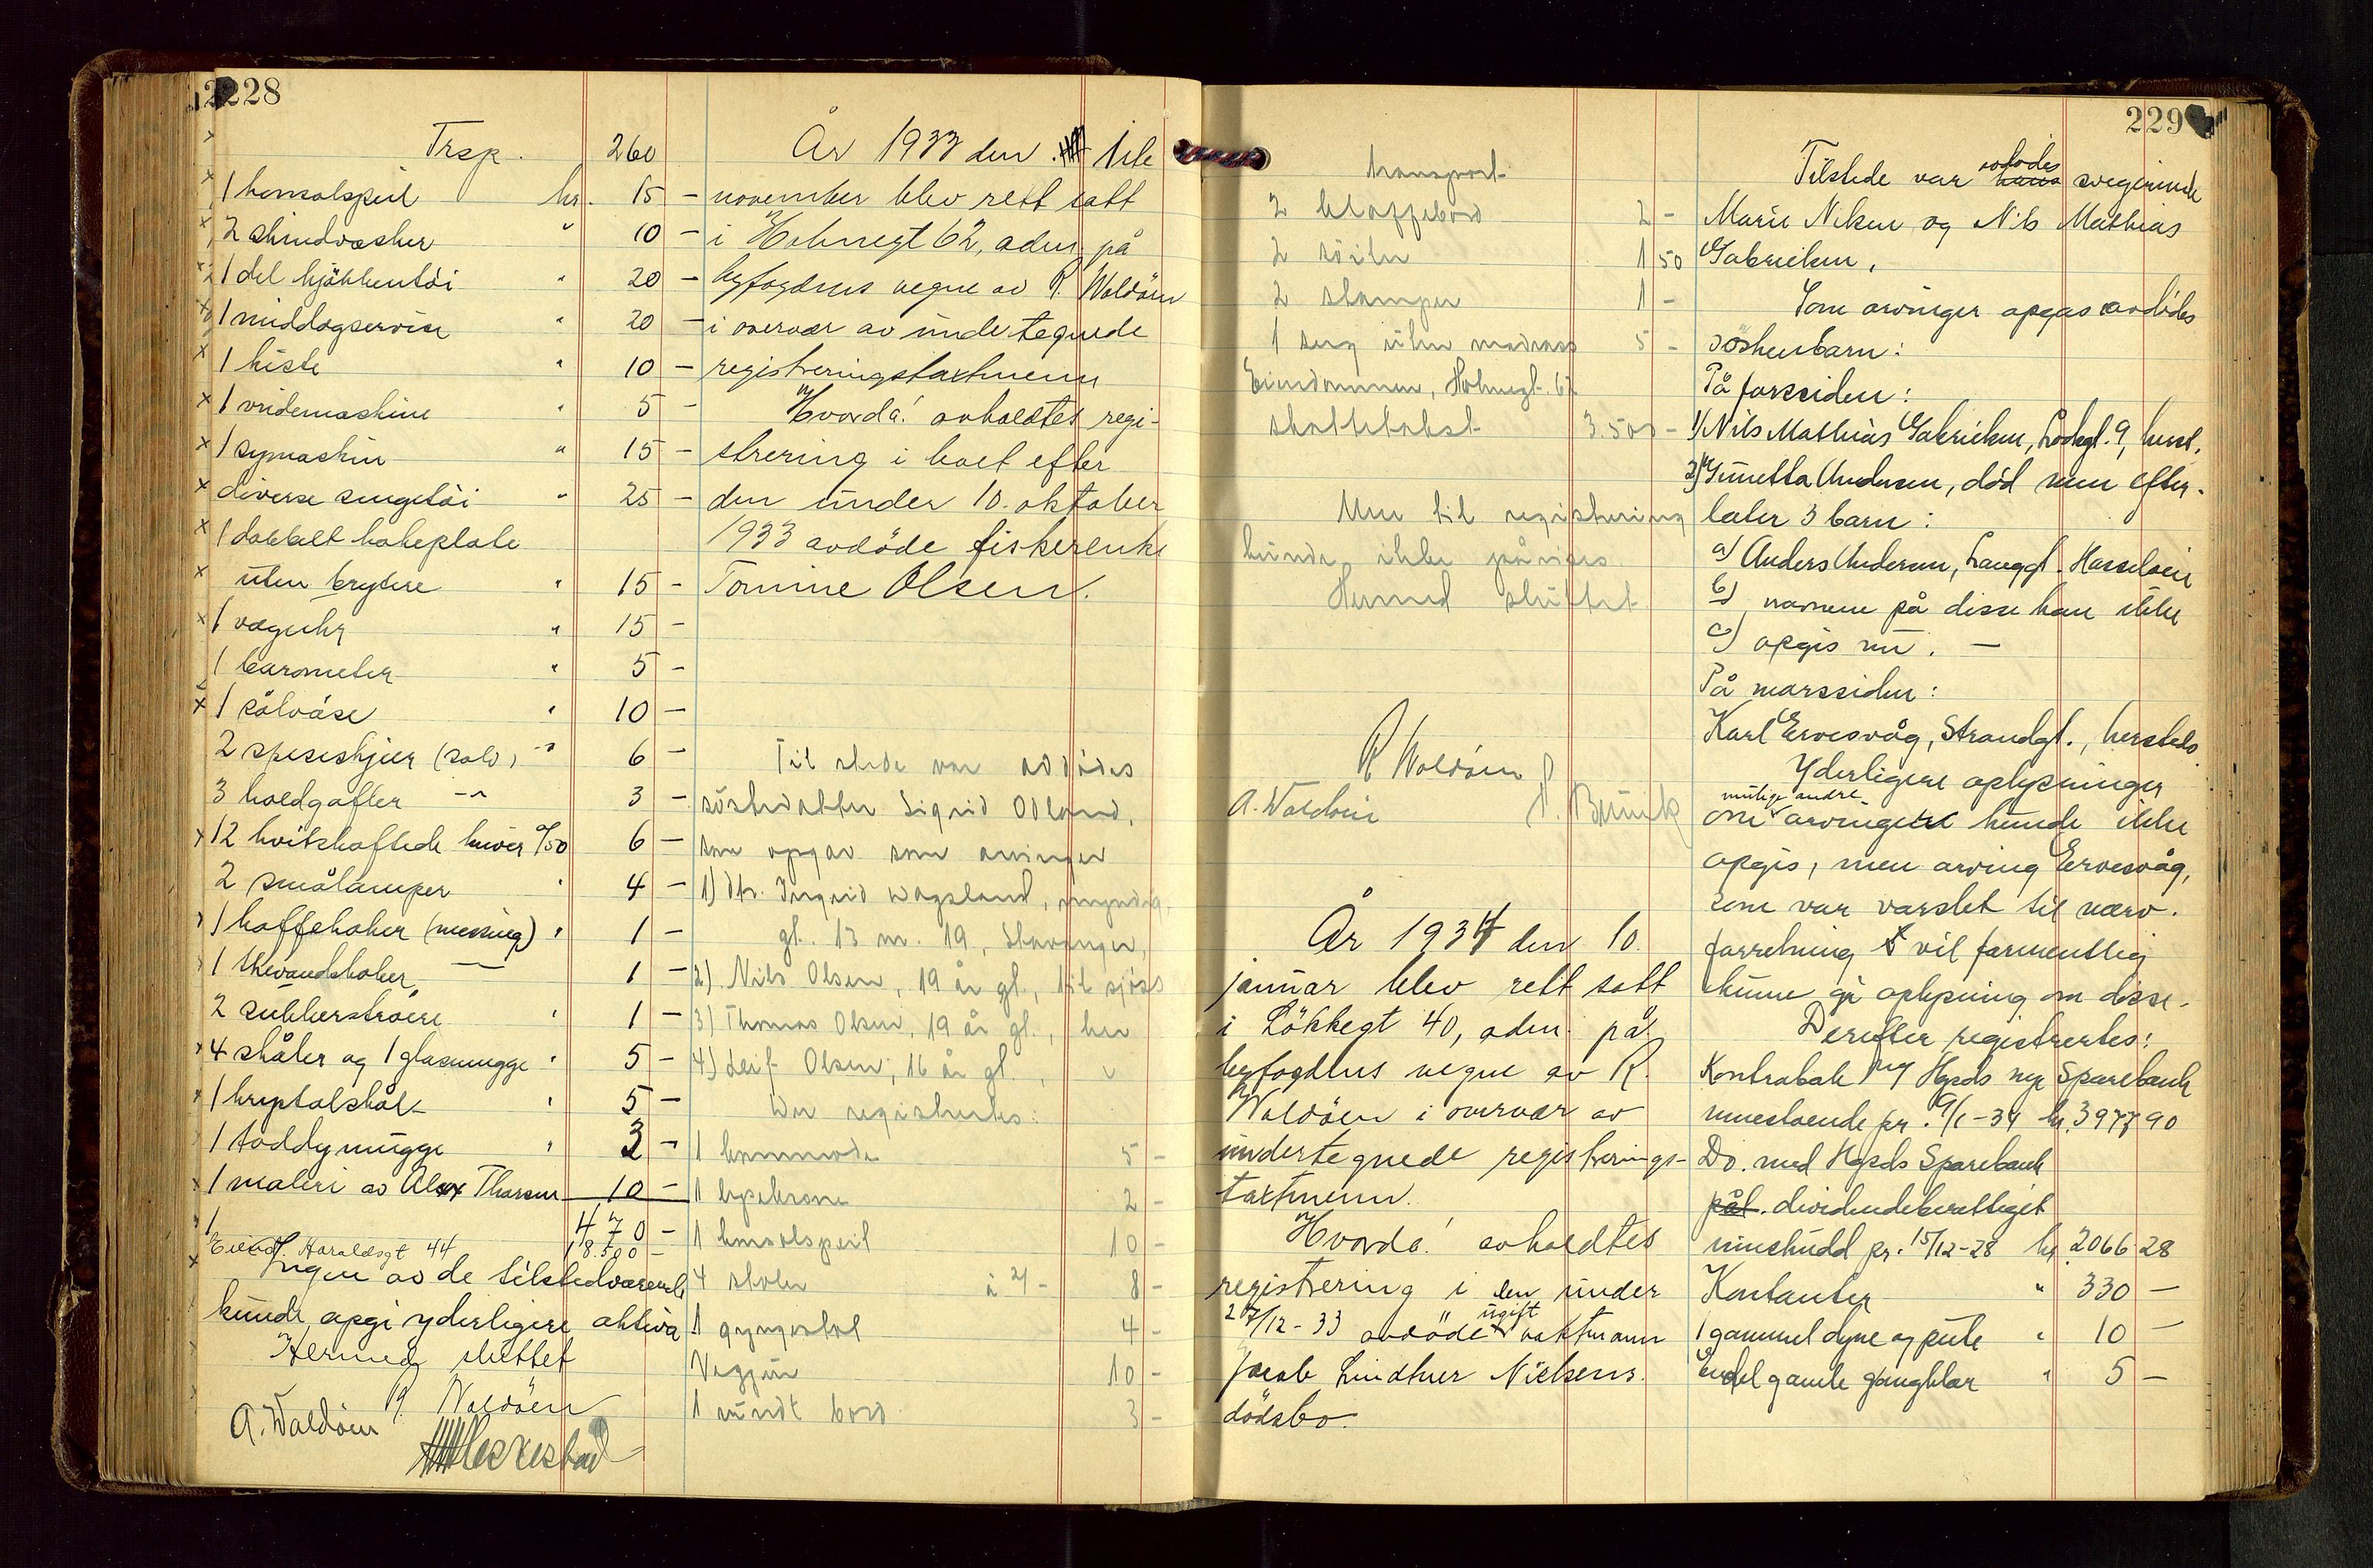 228
Trsp. 260
1 konsolspeil kr. 15 -
2 skindvesker " 10 -
1 del kjökkentöi " 20 -
1 middagservise " 20 -
1 kiste " 10 -
1 vridemaskine " 5 -
1 symaskin " 15 -
diverse sengetöi " 25 -
1 dobbelt kokeplate
uten brytere " 15 -
1 væguhr " 15 -
1 barometer " 5 -
1 sölvåse " 10 -
2 spiseskjeer (sölv) " 6 -
3 koldgafler -"- 3 -
12 hvitskaftede kniver 0/50 6 -
2 smålamper " 4 -
1 kaffekoker (messing) " 1 -
1 thevandskoker — 1 -
2 sukkerströere " 1 -
4 skåler og 1 glasmugge " 5 -
1 krystalskål " 5 -
1 toddymugge " 3 -
1 maleri av Alex Tharsen 10 -
470 -
Eiend. Haraldsgt 44 18.500 -
Ingen av de tilstedværende
kunde opgi yderligere aktiva.
Hermed sluttet
R. Waldöen
A. Waldöen
År 1933 den 1ste
november blev rett satt
i Holmegt 62, adm. på
byfogdens vegne av R. Waldöen
i overvær av undertegnede
registreringstaxtmenn
Hvorda! avholdtes regi-
strering i boet efter
den under 10. oktober
1933 avdöde fiskerenke
Tomine Olsen.
Til stede var avdödes
sösterdatter Sigrid Odland,
som opgav som arvinger
1) Frk. Ingrid Wagsland, myndig,
gt. 13 nr. 19, Stavanger,
2). Nils Olsen, 19 år gl., til sjöss
3) Thomas Olsen, 19 år gl., her
4) Leif Olsen, 16 år gl., "
Der registrertes:
1 kommode 5 -
1 lysekrone 2 -
1 konsolspeil 10 -
4 stoler à 2/- 8 -
1 gyngestol 4 -
Veggur 10 -
1 rundt bord 3 -
229
transport
2 klaffebord 2 -
2 söiler 1 50
2 stamper 1 -
1 seng uten madrass 5 -
Eiendommen, Holmegt. 62
skattetakst 3.500 -
Mer til registrering
kunde ikke påvises.
Hermed sluttet
R Waldöen
A. Waldöen
År 1934 den 10.
januar blev rett satt
i Lökkegt 40, adm. på
byfogdens vegne av R.
Waldöen i overvær av
undertegnede registrerings-
taxtmenn.
Hvorda! avholdtes
registrering i den under
27/12-33 avdöde ugift vaktmann
Jacob Lindtner Nielsens
dödsbo.
Tilstede var avdödes svigerinde
Marie Nilsen og Nils Mathias
Gabrielsen.
Som arvinger opgas avdödes
söskenbarn:
På farssiden:
1) Nils Mathias Gabrielsen, Lökkegt. 9, herst.
2) Gunetta Andersen, död men efter-
later 3 barn:
a) Anders Andersen, Langgt. Hasseløen
b) navnene på disse kan ikke
c) opgis nu. —
På morssiden:
Karl Ervesvåg, Strandgt., hersteds
Yderligere oplysninger
om mulige andre arvinger kunde ikke
opgis, men arving Ervesvåg,
som var varslet til nærv.
forretning vil formentlig
kunne gi oplysning om disse.
Derefter registrertes:
Kontrabok med Hgsds nye Sparebank
innestående pr. 9/1-34 kr. 3977 90
Do. med Hgsds Sparebank
pål. dividendeberettiget
innskudd pr. 15/12-28 kr. 2066 28
Kontanter " 330 -
1 gammel dyne og pute " 10 -
Endel gamle gangklær " 5 -